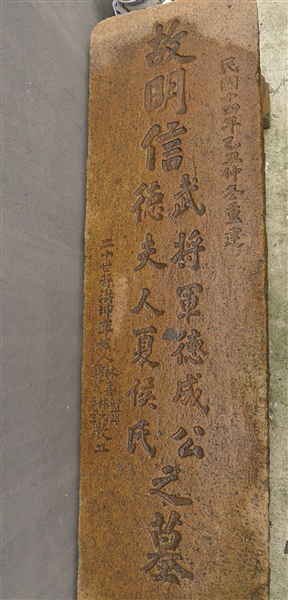 民國十四年乙丑仲冬重建
故明信
武將軍德成公
德夫人夏侯氏
之墓
二十世孫洪坤率